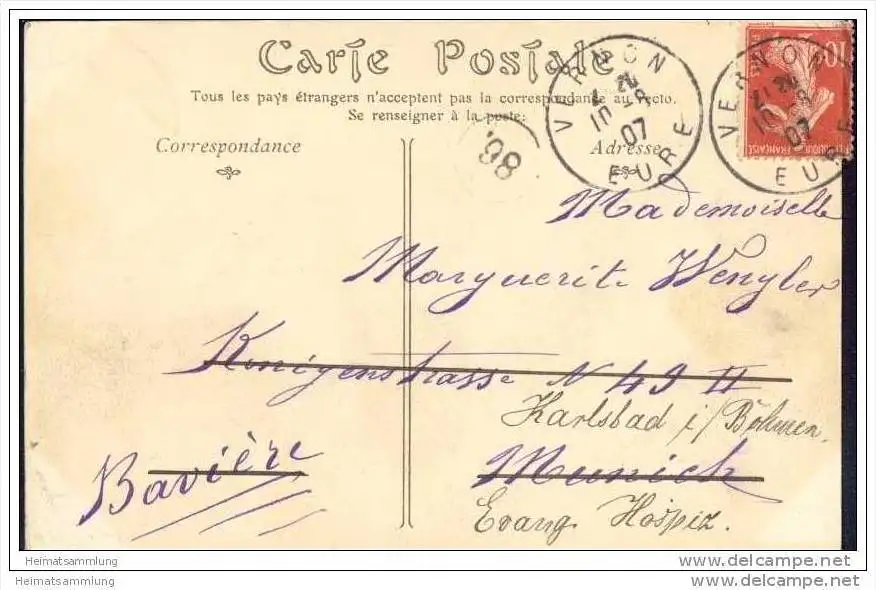 Carte Postale
Tous les pays étrangers n'acceptent pas la correspondance au recto.
Se renseigner à la poste:
Correspondance
Adresse
VERNON
10 - 8
07
EURE
VERNON
10 - 8
07
EURE
10
98
Mademoiselle
Marguerite Wengler
Konigenstrasse N 49 II
Karlsbad i/Böhmen.
Bavière
Munich
Evang. Hospiz.
Heimatsammlung
delcampe.net
Heimatsammlung
delcampe.net